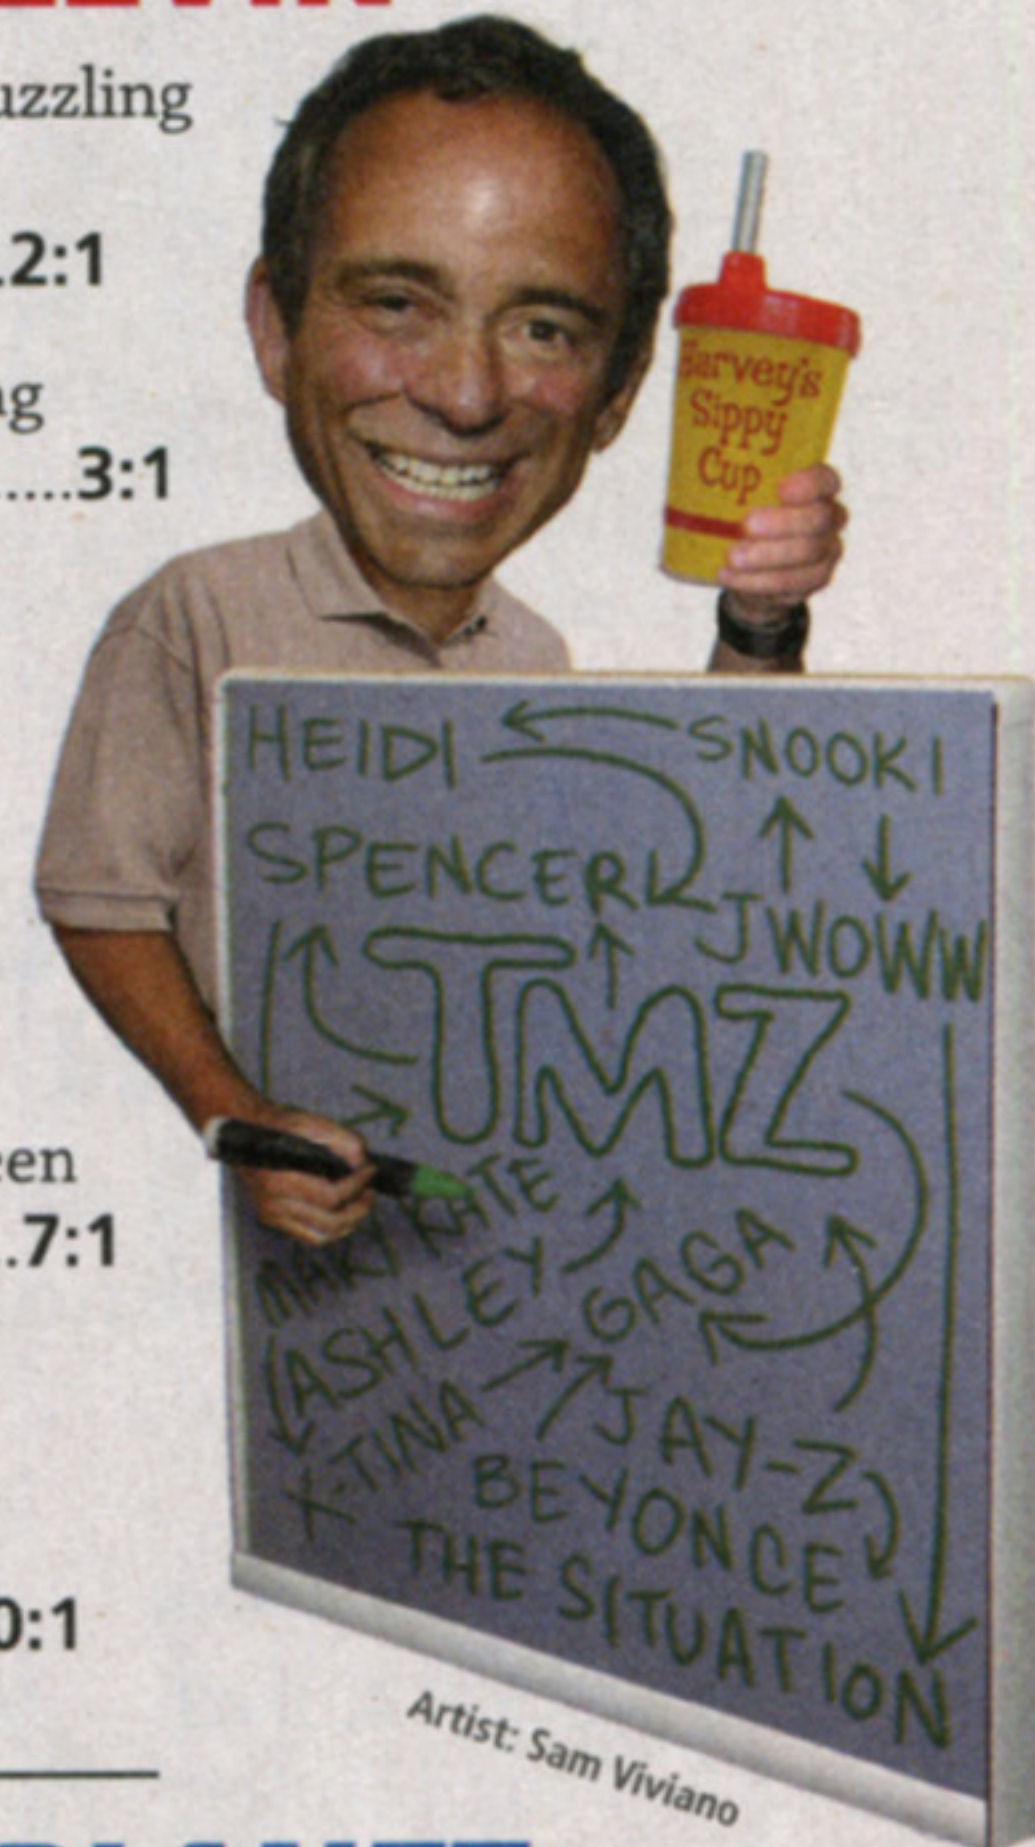 .2:1
.....3:1
.7:1
0:1
Harvey's
Sippy
Cup
HEIDI
SNOOKI
SPENCER
JWOWW
TMZ
MARY KATE
ASHLEY
GAGA
X-TINA
JAY-Z
BEYONCE
THE SITUATION
Artist: Sam Viviano